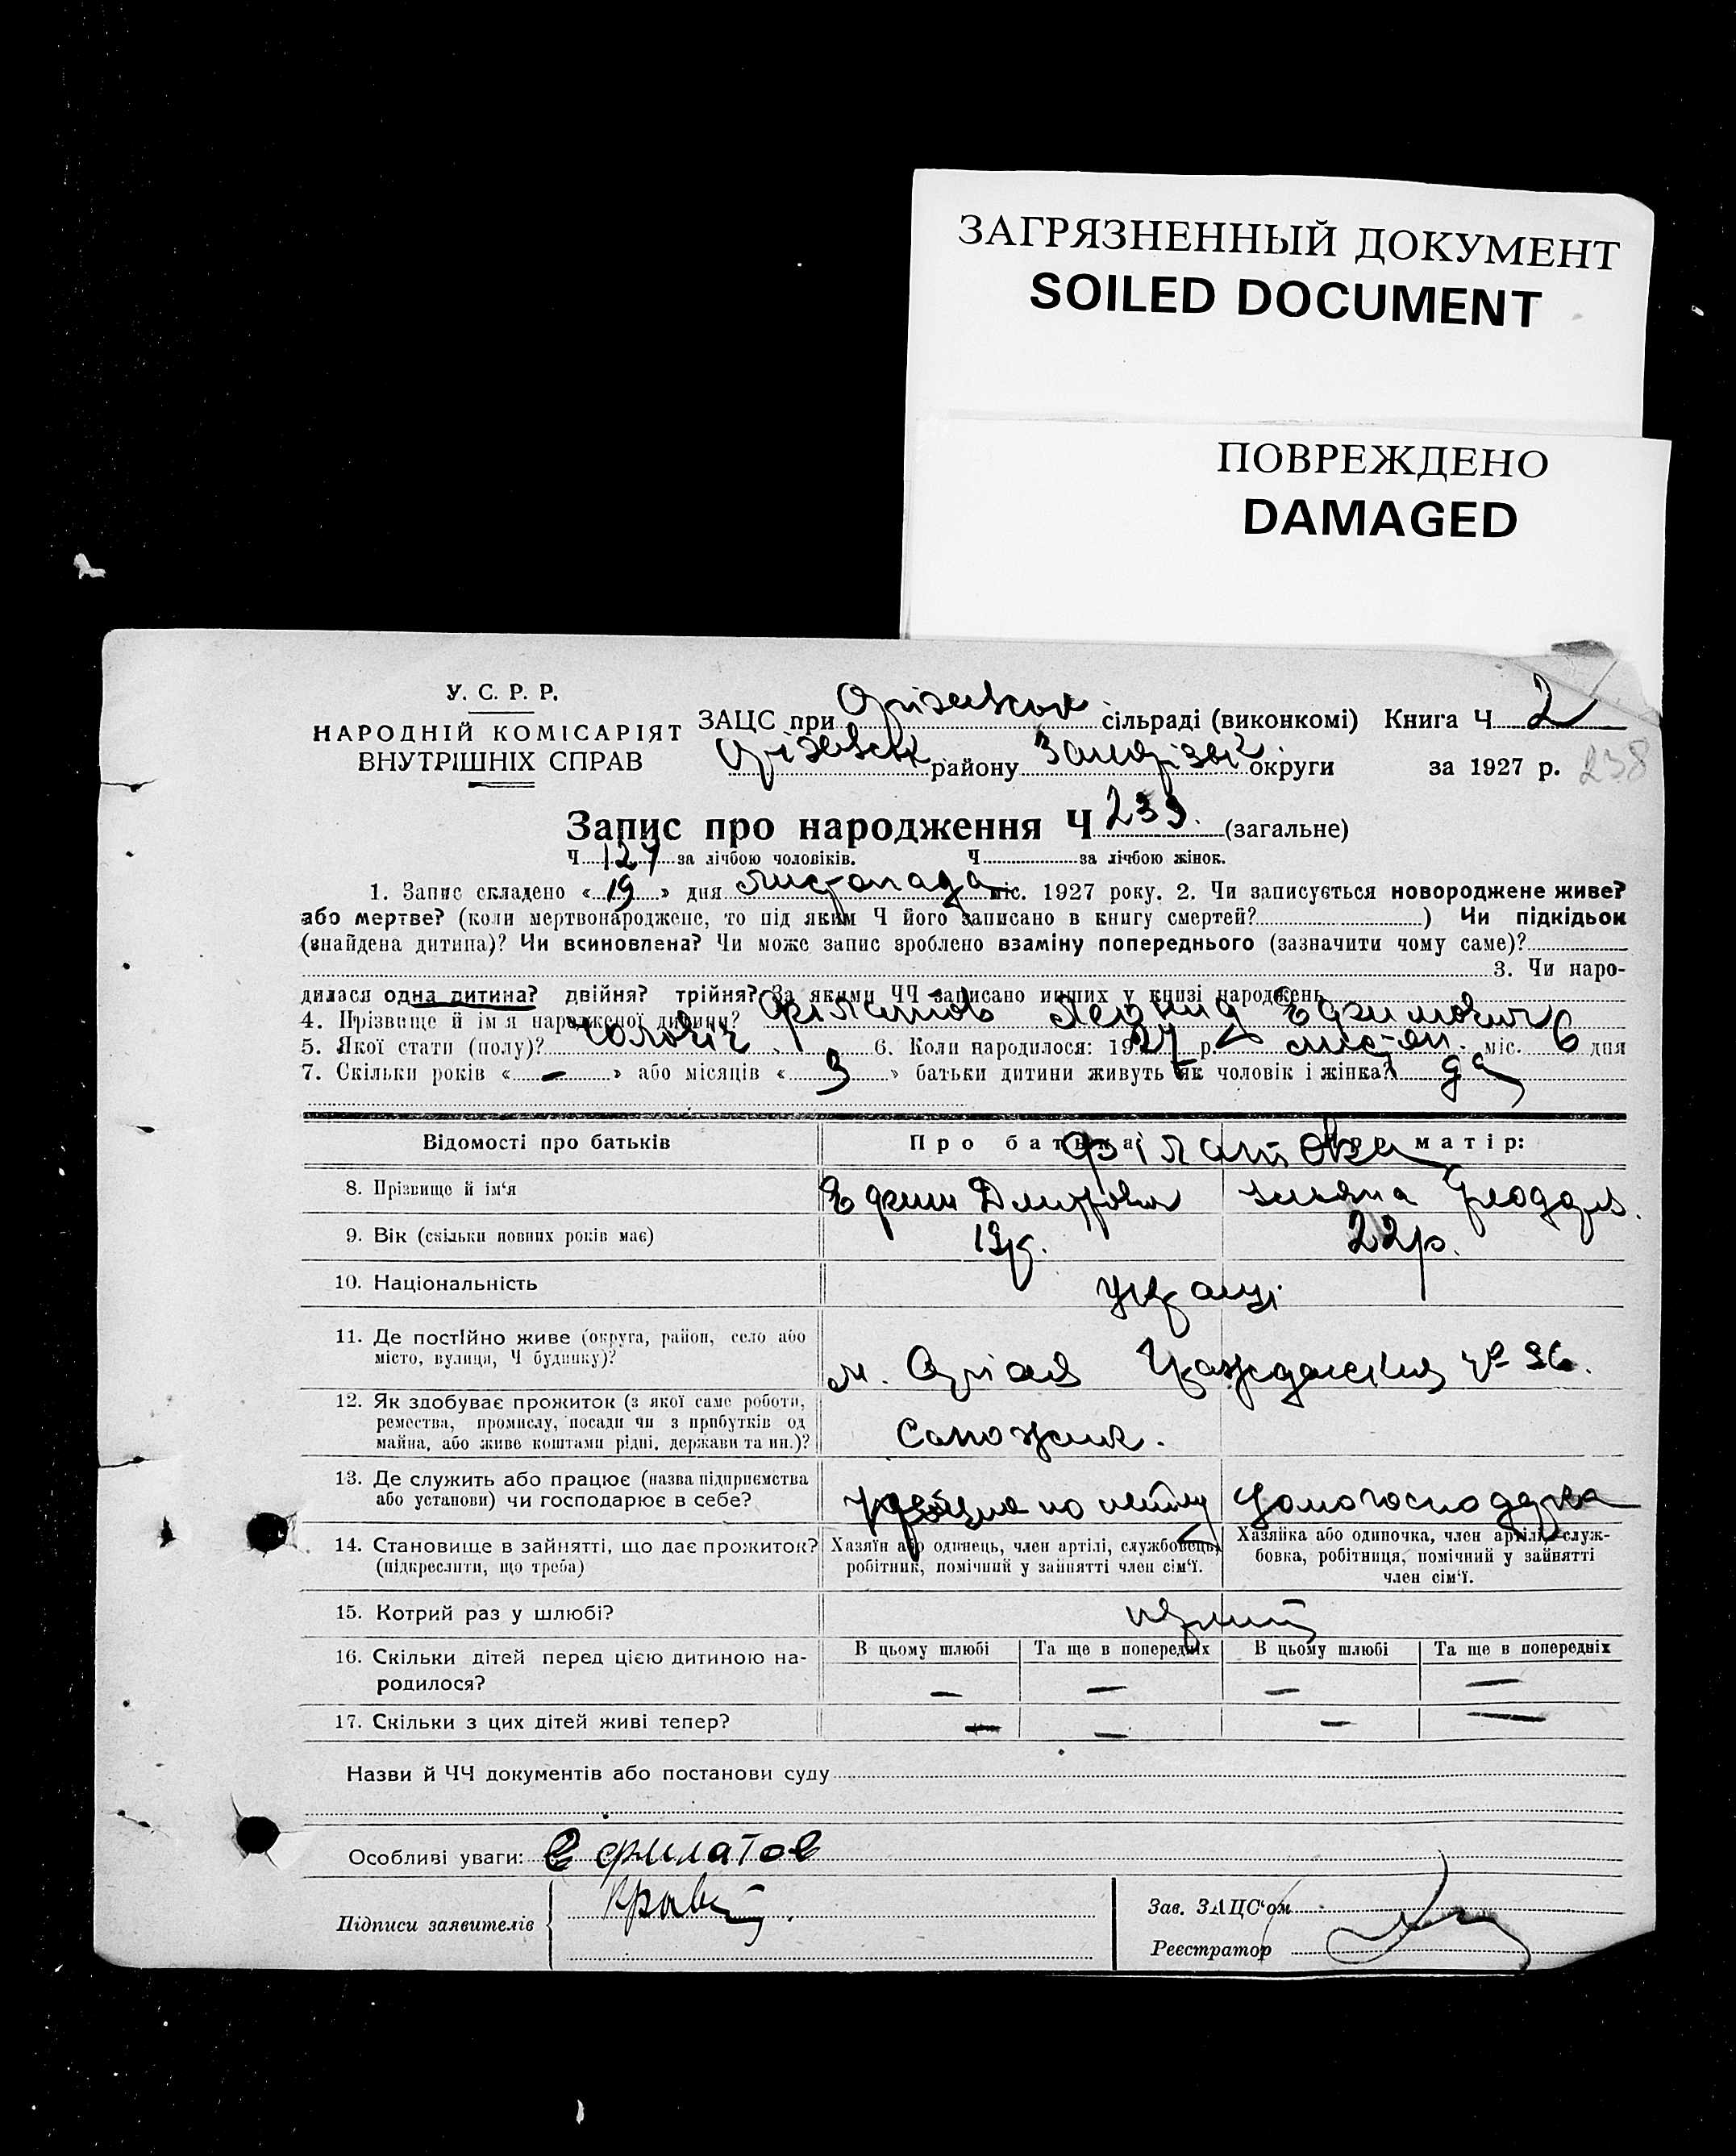 ЗАГРЯЗНЕННЫЙ ДОКУМЕНТ
SOILED DOCUMENT
ПОВРЕЖДЕНО
DAMAGED
У. С. Р. Р.
НАРОДНІЙ КОМІСАРІЯТ
ВНУТРІШНІХ СПРАВ
ЗАЦС при Оріхівськ сільраді (виконкомі) Книга Ч 2
Оріхівськ району Запорізьк округи за 1927 р. 238
Запис про народження Ч 239. (загальне)
Ч 127 за лічбою чоловіків. Ч за лічбою жінок.
1. Запис складено « 19 » дня листопада міс. 1927 року. 2. Чи записується новороджене живе?
або мертве? (коли мертвонароджене, то під яким Ч його записано в книгу смертей? ) Чи підкідьок
(знайдена дитина)? Чи всиновлена? Чи може запис зроблено взаміну попереднього (зазначити чому саме)?
3. Чи наро-
дилася одна дитина? двійня? трійня? За якими ЧЧ записано инших у книзі народжень
4. Прізвище й ім'я народженої дитини? Філатов Леонид Ефимович
5. Якої стати (полу)? чоловіч 6. Коли народилося: 1927 р. лист-ап. міс. 6 дня
7. Скільки років « — » або місяців « 9 » батьки дитини живуть як чоловік і жінка? да
Відомості про батьків Про батька: Про матір:
Філатова
8. Прізвище й ім'я Ефим Дмитрович
9. Вік (скільки повних років має) 19р. 22р.
10. Національність українці
11. Де постійно живе (округа, район, село або
місто, вулиця, Ч будинку)? м. Оріхів Гражданская № 36.
12. Як здобуває прожиток (з якої саме роботи,
ремества, промислу, посади чи з прибутків од
майна, або живе коштами рідні, держави та ин.)? Сапожник.
13. Де служить або працює (назва підприємства
або установи) чи господарює в себе? по найму домогосподарка
14. Становище в зайнятті, що дає прожиток?
(підкреслити, що треба)
Хазяїн або одинець, член артілі, службовець,
робітник, помічний у зайнятті член сім'ї.
Хазяйка або одиночка, член артілі, служ-
бовка, робітниця, помічний у зайнятті
член сім'ї.
15. Котрий раз у шлюбі? перший
16. Скільки дітей перед цією дитиною на-
родилося?
В цьому шлюбі Та ще в попередніх В цьому шлюбі Та ще в попередніх
— — — —
17. Скільки з цих дітей живі тепер? — — — —
Назви й ЧЧ документів або постанови суду
Особливі уваги: Е Филатов
Підписи заявителів
Зав. ЗАЦС'ом
Реєстратор